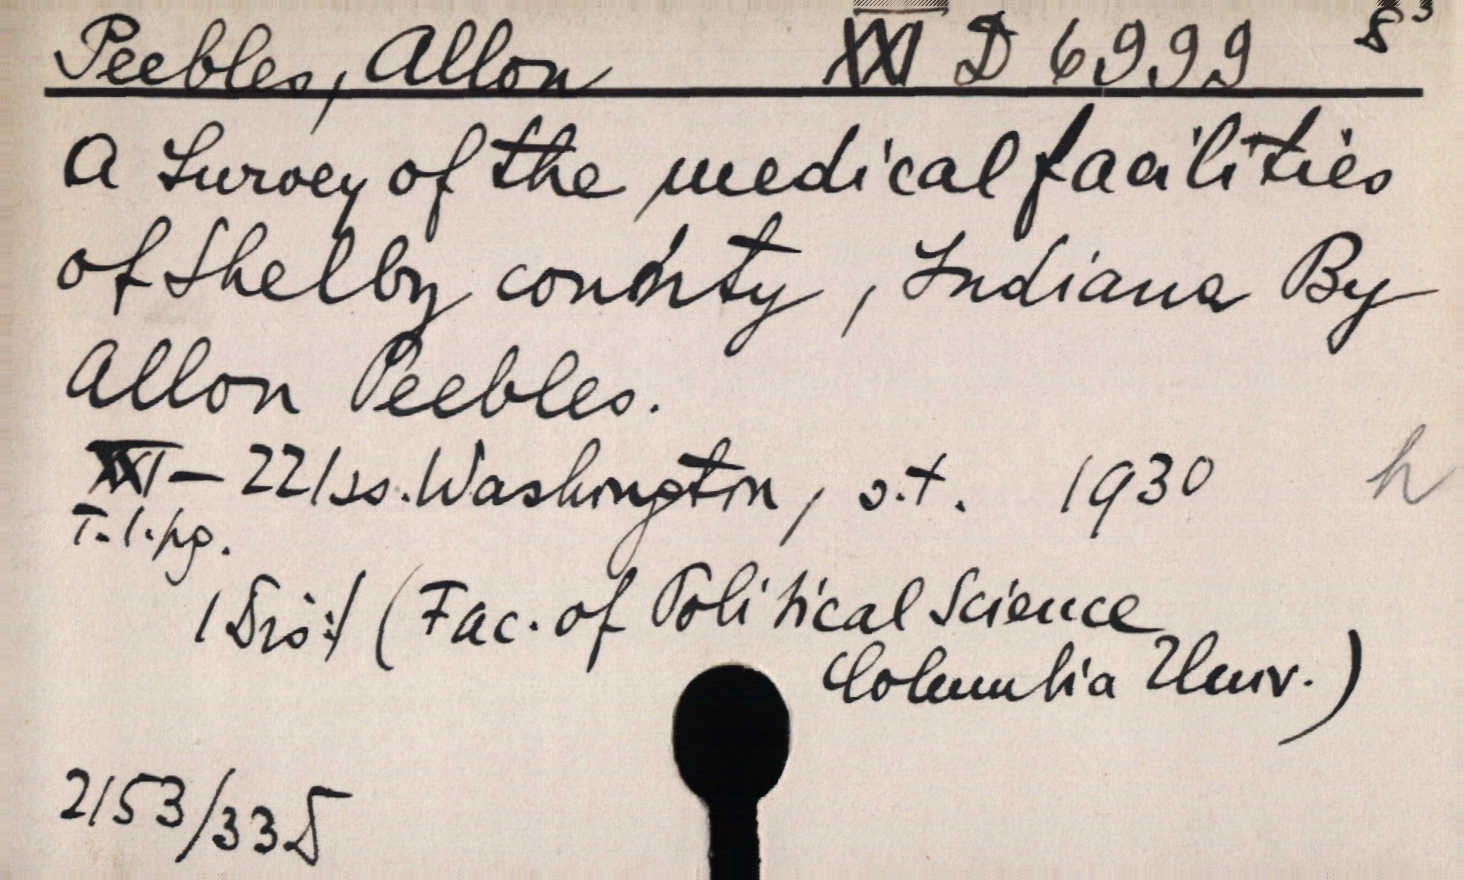 Peebles, Allon XXI D 6999 8°
A Survey of the medical facilities
of Shelby county, Indiana By
Allon Peebles.
XXI — 221 ss. Washington, s.t. 1930 h
T.l.pg.
/Dis:/ (Fac. of Political Science
Columbia Univ.)
2153/33D